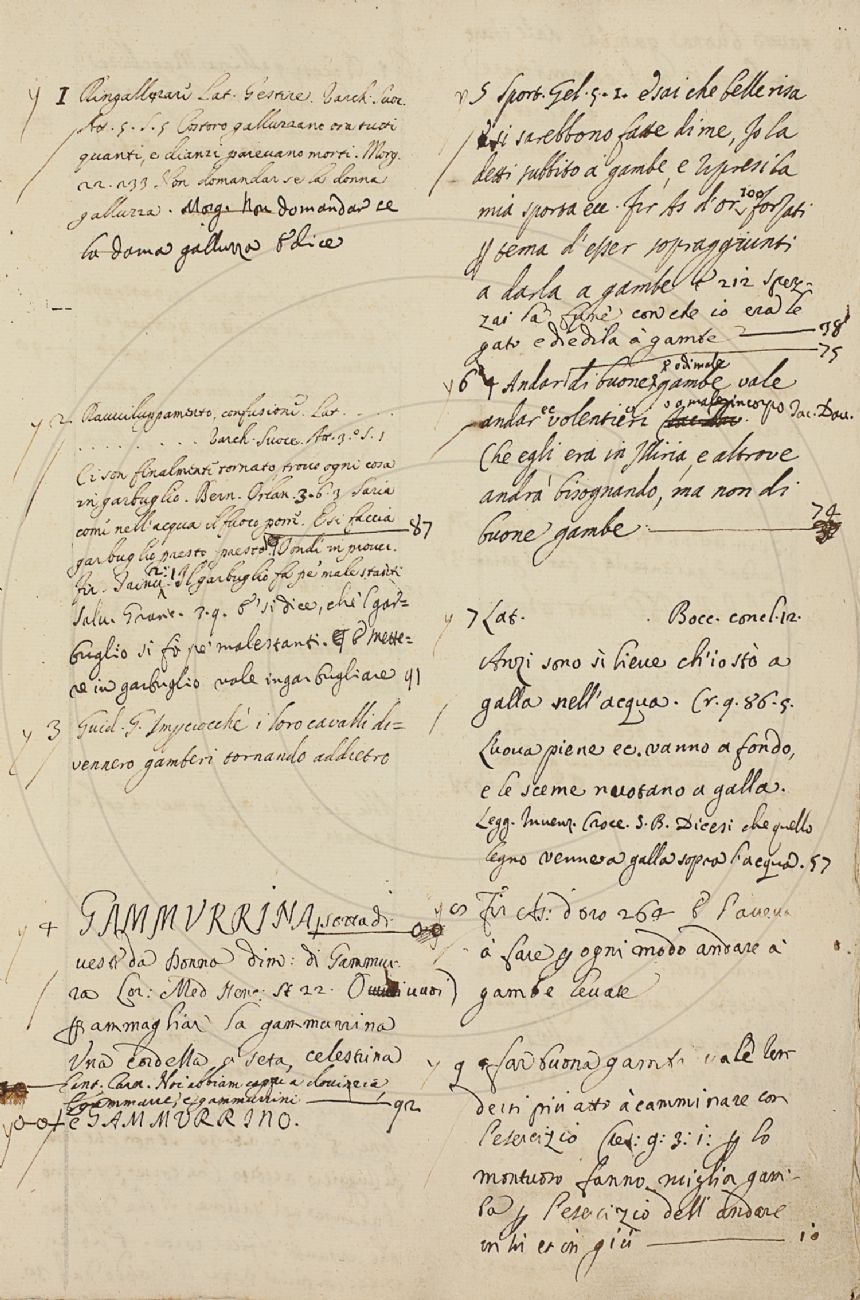 1 Ringalluzzari Lat. Gestire. Varch. Suoc.
At. 5. s. 5 Costoro galluzzano ora tutti
quanti, e dianzi parevano morti. Morg.
22. 233. Non domandar se la donna
galluzza. Morg. Non domandar se
la dama galluzza E dice
2 Ravviluppamento, confusione. Lat. . . . .
. . . . . . . . . Varch. Suoce. At. 3.° s. 1
Ci son finalmente tornato, trovo ogni cosa
in garbuglio. Bern. Orlan. 3. 6. 3 Saria
come nell'acqua il fuoco porre. E si faccia 87
garbuglio presto presto. Ondi in prover.
Fir. 2. 1 Il garbuglio fa pe' male stanti
Salv. Granc. 3. 9. E si dice, che'l gar=
buglio si fa pe' malestanti. E Mette=
re in garbuglio vale ingarbugliare 91
3 Guid. G. Impciocché i loro cavalli di=
vennero gamberi tornando addietro
4 GAMMVRRINA sorta di
veste da Donna dim: di Gammur.
ra Lor: Med Nenc: St 22.
ꝑ ammagliar la gammurrina
Vna cordella a seta, celestrina
Cant. Carn. Noi abbiam cappe a dovizia
Egammurre, e gammurrini 92
e GAMMVRRINO.
5 Sport. Gel. 5. 1. E sai che belle risa
si sarebbono fatte di me, Io la
detti subbito a gambe, e ripresi la
mia sporta ecc. Fir As d'or. 100 forzati
ꝑ tema d'esser sopraggiunti
a darla a gambe E 212 spez-
zai la fune con che io era le
gato e diedila a gambe 38
75
6 Andar di buone, e di male gambe vale
andar volentieri o male in corpo Iac. Dav.
Che egli era in Illiria, e altrove
andrà bisognando, ma non di
buone gambe 74
7 Lat. . Bocc. concl. 12.
Anzi sono sì lieve ch'io stò a
galla nell'acqua. Cr. 9. 86. 5.
L'uova piene ec. vanno a fondo,
e le sceme nuotano a galla.
Legg. Invenz. Croce. S. B. Dicesi che quello
legno venne a galla sopra l'acqua. 57
8 Fir As: d'oro 264 E l'aveva
a fare ꝑ ogni modo andare a
gambe levate
9 far buona gamba vale
dersi più atto à camminare con
l'esercizio Cres: 9: 3: 1: ꝑ lo
montuoso fanno miglior gam-
ba ꝑ l'esercizio dell'andare
in sù et in giù 10